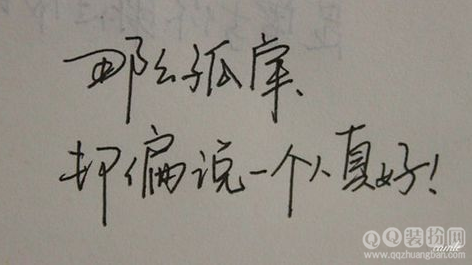 那么孤单、
却偏说一个人真好！
QQ装扮网
www.qqzhuangban.com